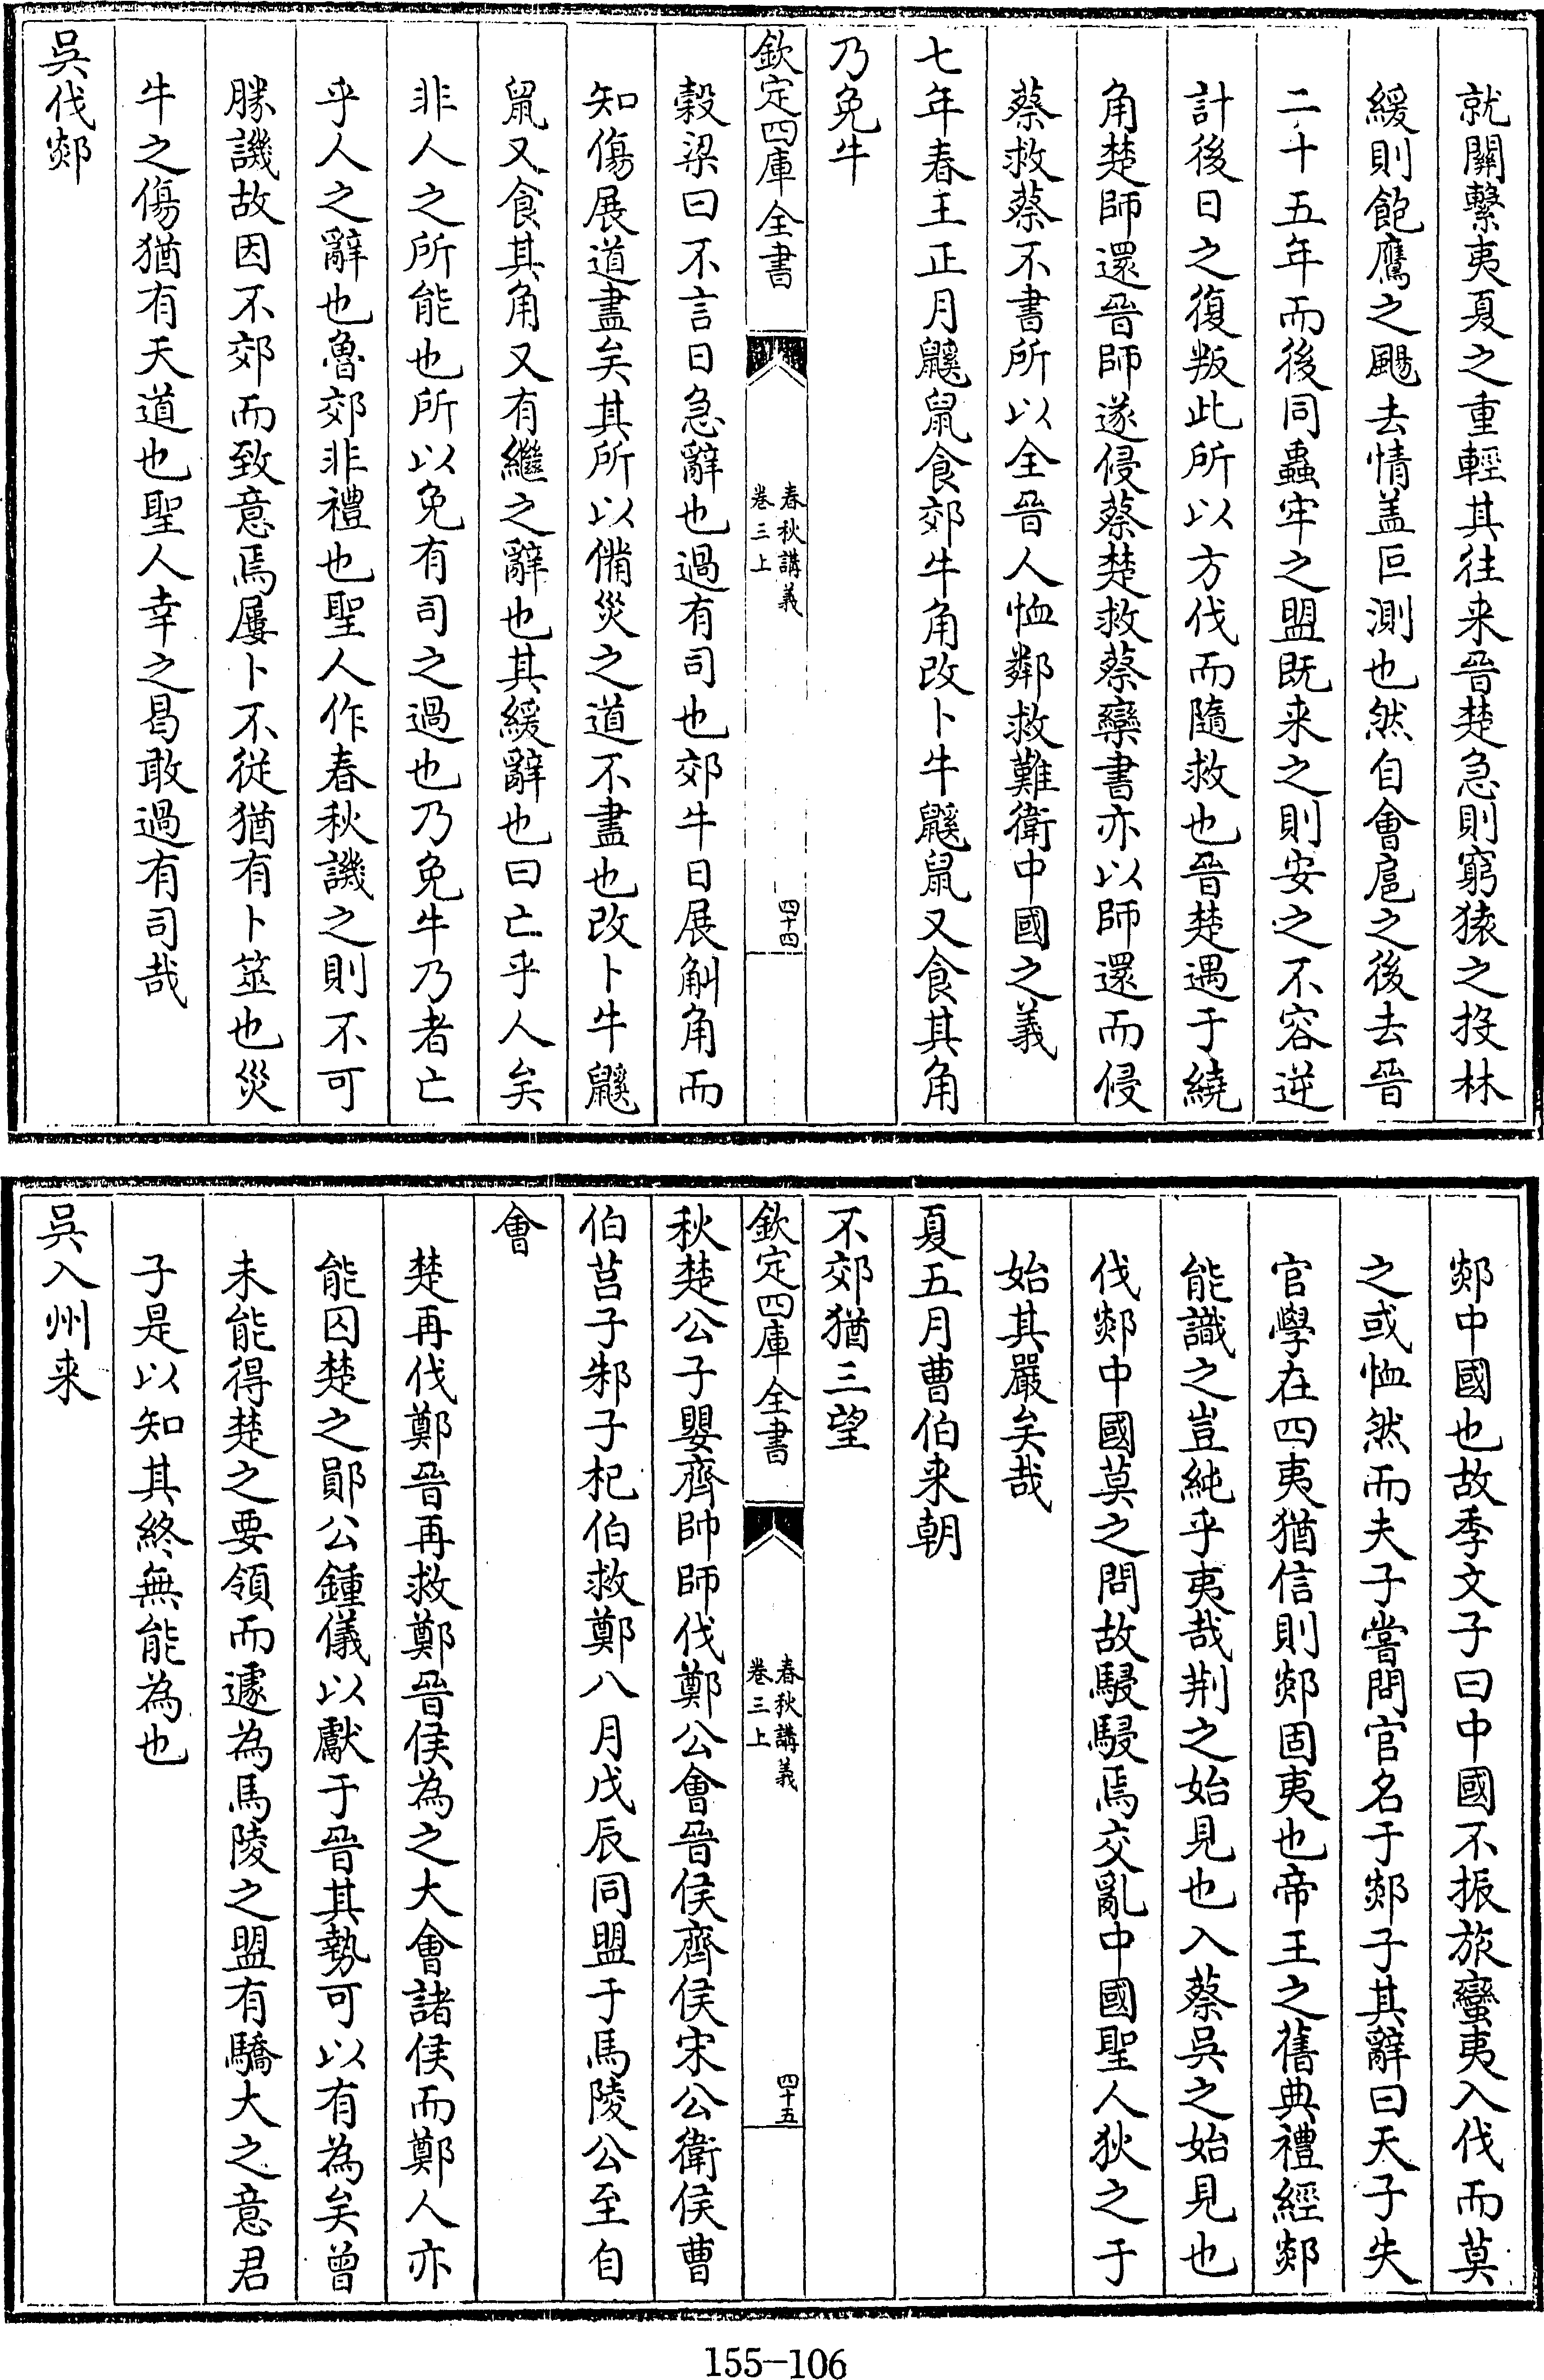 就關繫夷夏之重輕其往来晉楚急則窮猿之投林
緩則飽鷹之颺去情盖叵測也然自會扈之後去晉
二十五年而後同蟲牢之盟既来之則安之不容逆
計後日之復叛此所以方伐而隨救也晉楚遇于繞
角楚師還晉師遂侵蔡楚救蔡欒書亦以師還而侵
蔡救蔡不書所以全晉人恤鄰救難衛中國之義
七年春王正月鼷鼠食郊牛角改卜牛鼷鼠又食其角
乃免牛
欽定四庫全書
春秋講義
卷三上
四十四
穀梁曰不言日急辭也過有司也郊牛日展斛角而
知傷展道盡矣其所以備災之道不盡也改卜牛鼷
鼠又食其角又有繼之辭也其緩辭也曰亡乎人矣
非人之所能也所以免有司之過也乃免牛乃者亡
乎人之辭也魯郊非禮也聖人作春秋譏之則不可
勝譏故因不郊而致意焉屢卜不從猶有卜筮也災
牛之傷猶有天道也聖人幸之曷敢過有司哉
吳伐郯
郯中國也故季文子曰中國不振旅蠻夷入伐而莫
之或恤然而夫子嘗問官名于郯子其辭曰天子失
官學在四夷猶信則郯固夷也帝王之舊典禮經郯
能識之豈純乎夷哉荆之始見也入蔡吳之始見也
伐郯中國莫之問故駸駸焉交亂中國聖人狄之于
始其嚴矣哉
夏五月曹伯来朝
不郊猶三望
欽定四庫全書
春秋講義
卷三上
四十五
秋楚公子嬰齊帥師伐鄭公會晉侯齊侯宋公衛侯曹
伯莒子邾子杞伯救鄭八月戊辰同盟于馬陵公至自
會
楚再伐鄭晉再救鄭晉侯為之大會諸侯而鄭人亦
能囚楚之鄖公鍾儀以獻于晉其勢可以有為矣曾
未能得楚之要領而遽為馬陵之盟有驕大之意君
子是以知其終無能為也
吳入州来
155-106